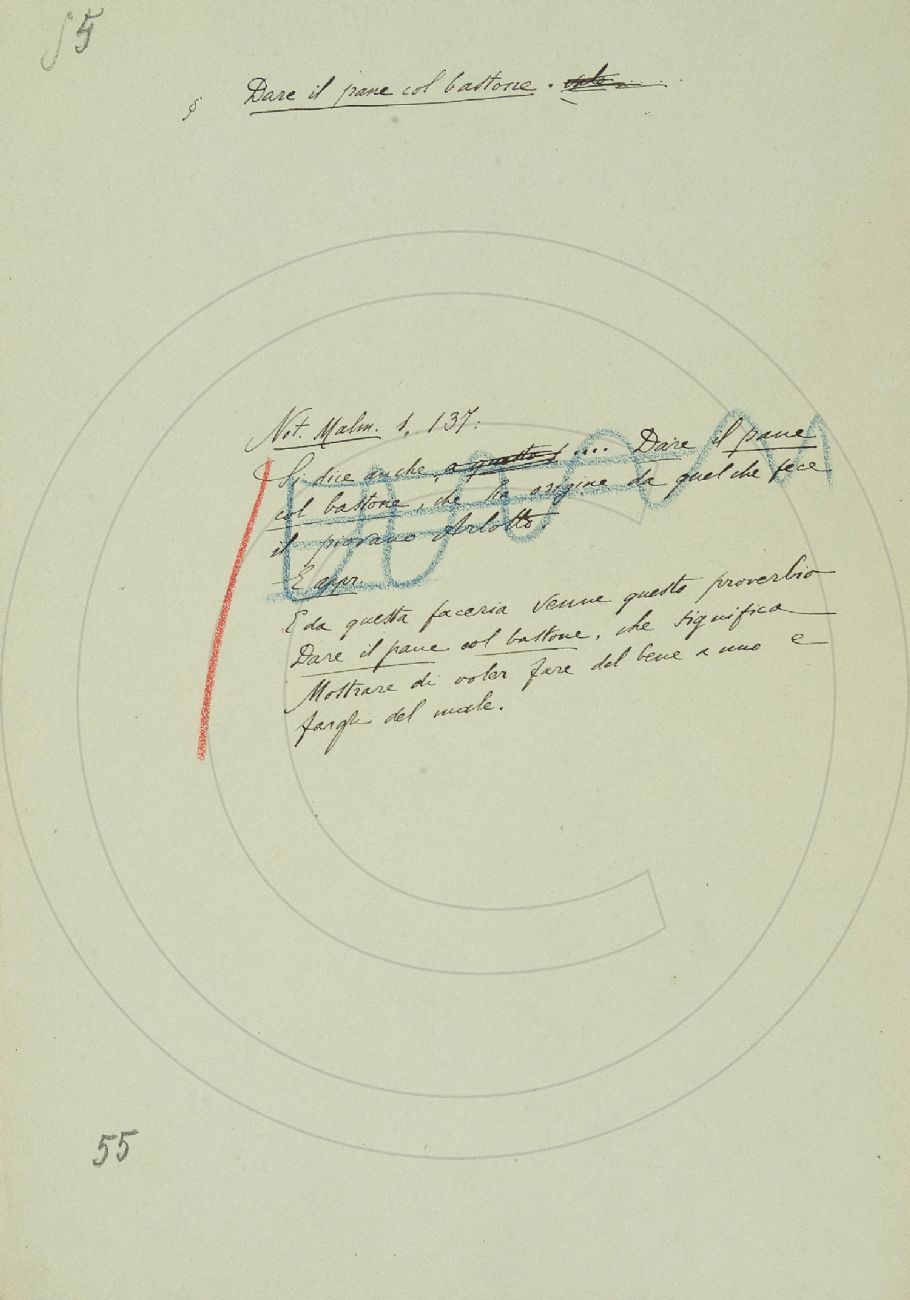 55
§ Dare il pane col bastone.
Not. Malm. 1, 137:
Si dice anche, a questo .... Dare il pane
col bastone, che ha origine da quel che fece
il piovano Arlotto.
E appr.
E da questa faceria venne questo proverbio
Dare il pane col bastone, che significa
Mostrare di voler fare del bene a uno e
fargli del male.
55